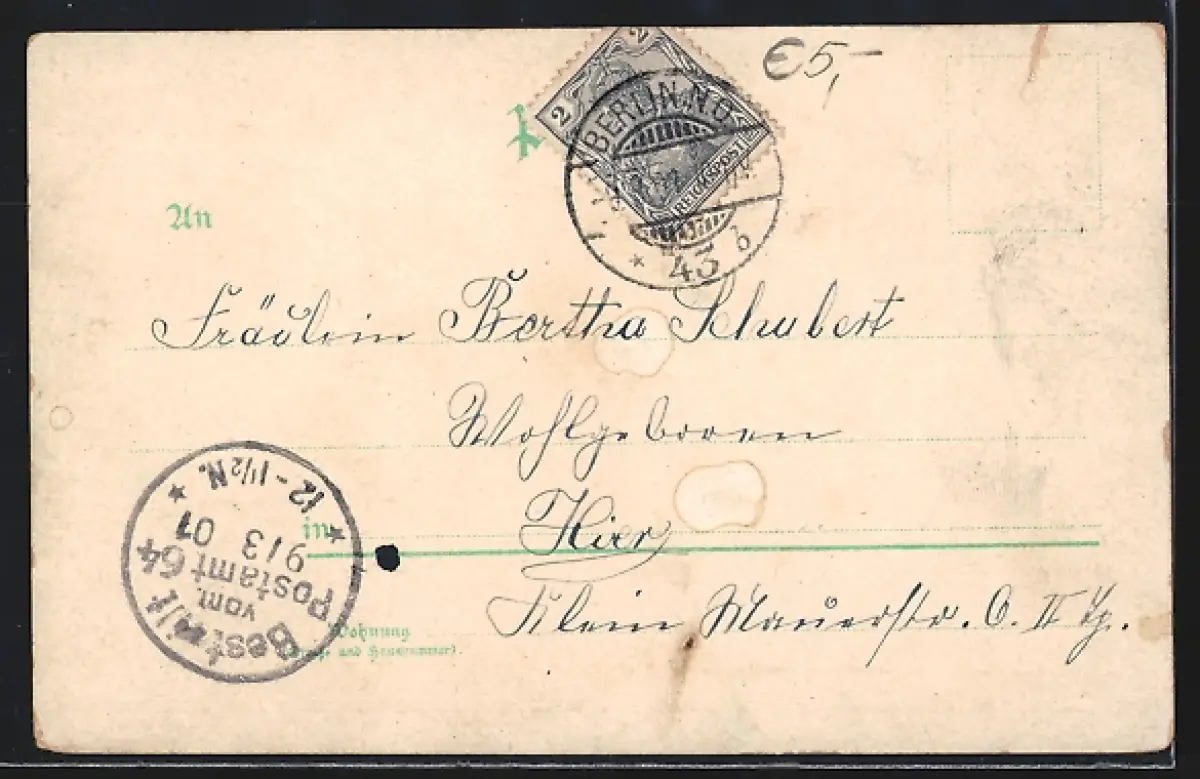 €5,-
2
2
REICHSPOST
BERLIN N.O.
* 43 b
An
Fräulein Bertha Schubert
Wohlgeboren
in
Hier
Klein Mauerstr. 6. II Tr.
Wohnung
(Straße und Hausnummer).
Bestellt
vom
Postamt 64
9/3 01
* 12-1½N. *